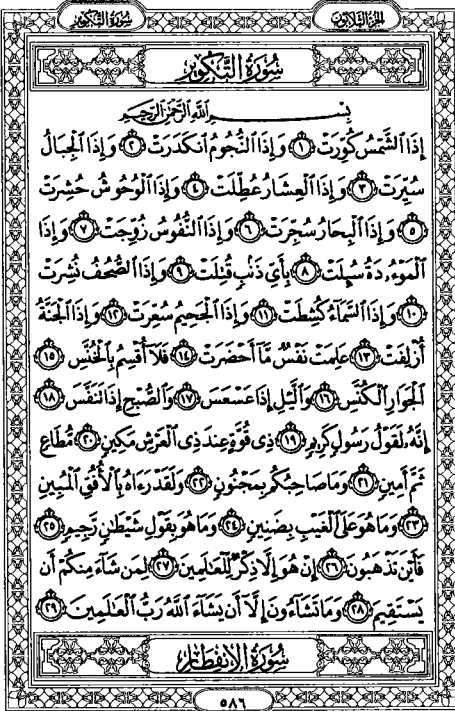 سُورَةُ التَّكْوِيرِ الجُزْءُ الثَّلَاثُونَ
سُورَةُ التَّكْوِيرِ
بِسْمِ ٱللَّهِ ٱلرَّحْمَٰنِ ٱلرَّحِيمِ
إِذَا ٱلشَّمْسُ كُوِّرَتْ ١ وَإِذَا ٱلنُّجُومُ ٱنكَدَرَتْ ٢ وَإِذَا ٱلْجِبَالُ
سُيِّرَتْ ٣ وَإِذَا ٱلْعِشَارُ عُطِّلَتْ ٤ وَإِذَا ٱلْوُحُوشُ حُشِرَتْ
٥ وَإِذَا ٱلْبِحَارُ سُجِّرَتْ ٦ وَإِذَا ٱلنُّفُوسُ زُوِّجَتْ ٧ وَإِذَا
ٱلْمَوْءُۥدَةُ سُئِلَتْ ٨ بِأَىِّ ذَنۢبٍ قُتِلَتْ ٩ وَإِذَا ٱلصُّحُفُ نُشِرَتْ
١٠ وَإِذَا ٱلسَّمَآءُ كُشِطَتْ ١١ وَإِذَا ٱلْجَحِيمُ سُعِّرَتْ ١٢ وَإِذَا ٱلْجَنَّةُ
أُزْلِفَتْ ١٣ عَلِمَتْ نَفْسٌ مَّآ أَحْضَرَتْ ١٤ فَلَآ أُقْسِمُ بِٱلْخُنَّسِ ١٥
ٱلْجَوَارِ ٱلْكُنَّسِ ١٦ وَٱلَّيْلِ إِذَا عَسْعَسَ ١٧ وَٱلصُّبْحِ إِذَا تَنَفَّسَ ١٨
إِنَّهُۥ لَقَوْلُ رَسُولٍ كَرِيمٍ ١٩ ذِى قُوَّةٍ عِندَ ذِى ٱلْعَرْشِ مَكِينٍ ٢٠ مُّطَاعٍ
ثَمَّ أَمِينٍ ٢١ وَمَا صَاحِبُكُم بِمَجْنُونٍ ٢٢ وَلَقَدْ رَءَاهُ بِٱلْأُفُقِ ٱلْمُبِينِ
٢٣ وَمَا هُوَ عَلَى ٱلْغَيْبِ بِضَنِينٍ ٢٤ وَمَا هُوَ بِقَوْلِ شَيْطَٰنٍ رَّجِيمٍ ٢٥
فَأَيْنَ تَذْهَبُونَ ٢٦ إِنْ هُوَ إِلَّا ذِكْرٌ لِّلْعَٰلَمِينَ ٢٧ لِمَن شَآءَ مِنكُمْ أَن
يَسْتَقِيمَ ٢٨ وَمَا تَشَآءُونَ إِلَّآ أَن يَشَآءَ ٱللَّهُ رَبُّ ٱلْعَٰلَمِينَ ٢٩
سُورَةُ الِانفِطَارِ
٥٨٦